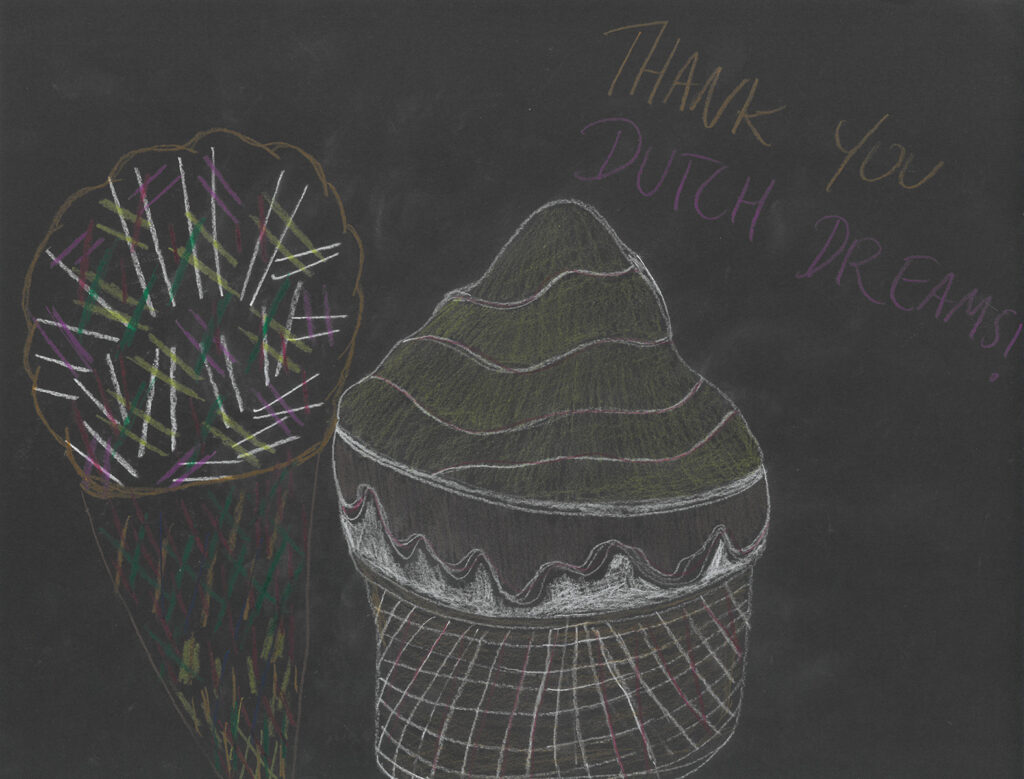 THANK YOU
DUTCH DREAMS!